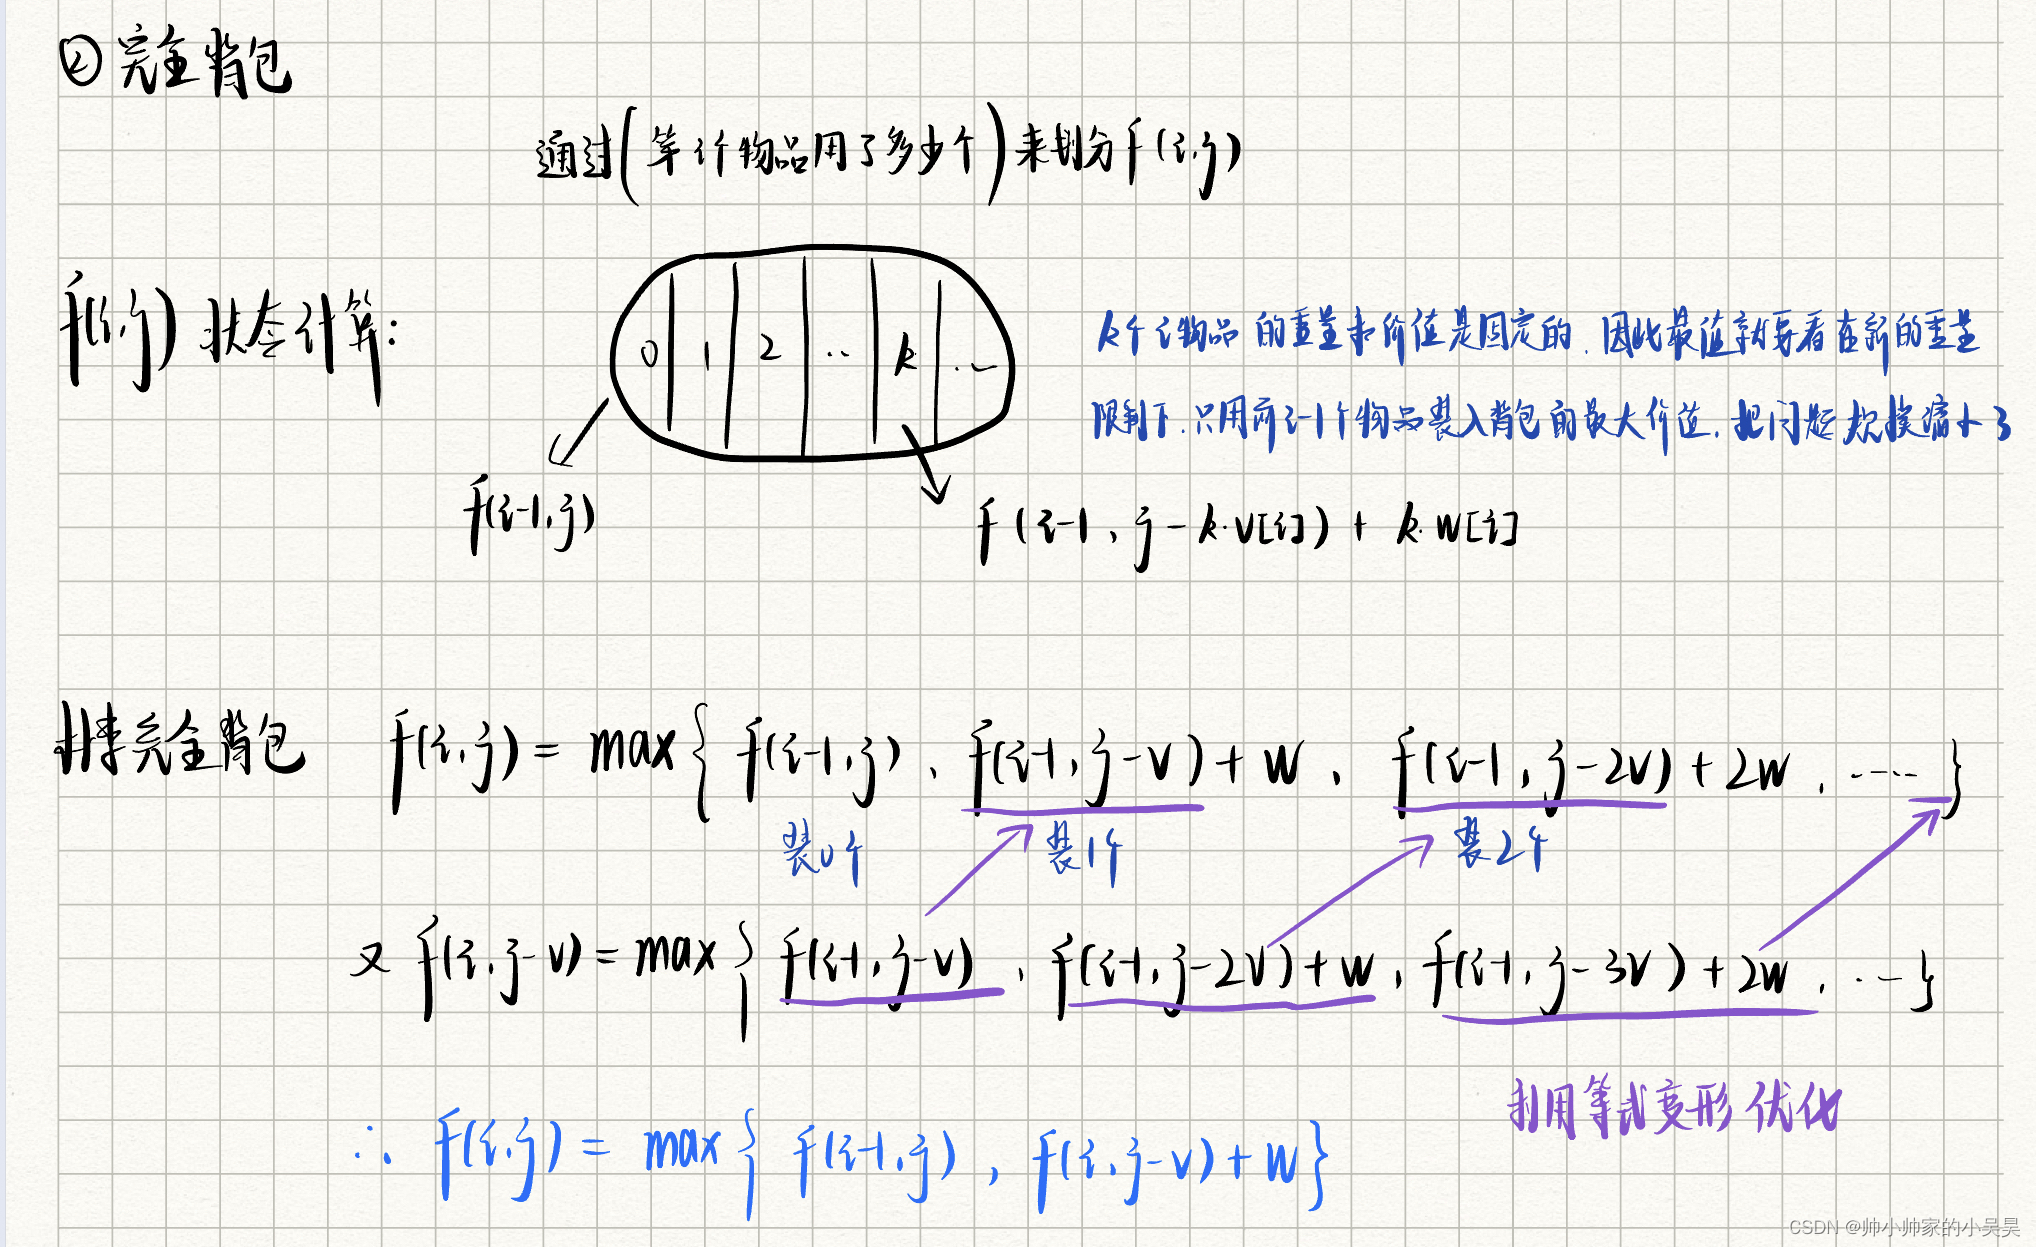 ② 完全背包
通过(第i个物品用了多少个)来划分f(i,j)
f(i,j) 状态计算:
0 1 2 .. k ...
k个i物品的重量和价值是固定的.因此最值就要看在新的重量
限制下.只用前i-1个物品装入背包的最大价值.把问题规模缩小了
f(i-1,j)
f(i-1,j-k·v[i])+k·w[i]
完全背包 f(i,j)=max{f(i-1,j)、f(i-1,j-v)+w、f(i-1,j-2v)+2w、……}
装0个 装1个 装2个
又 f(i,j-v)=max{f(i-1,j-v)、f(i-1,j-2v)+w,f(i-1,j-3v)+2w、…}
利用等式变形优化
∴ f(i,j)=max{f(i-1,j),f(i,j-v)+w}
CSDN @帅小帅家的小吴昊